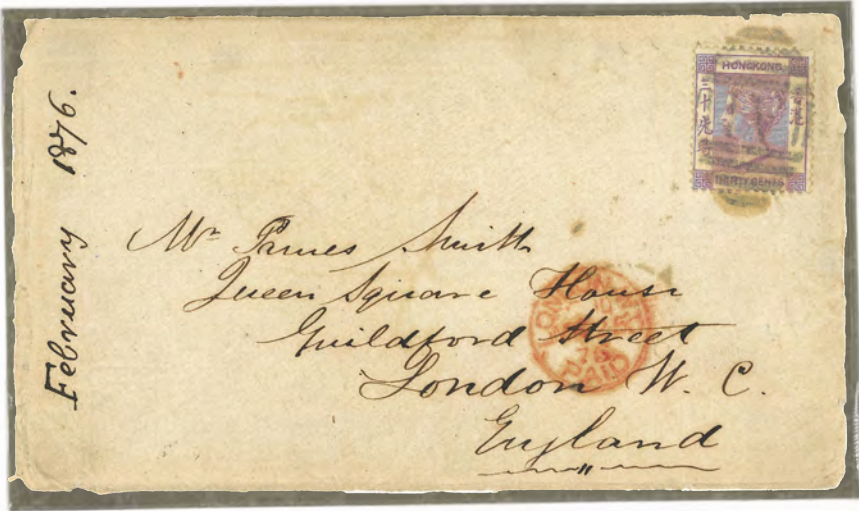 February 1876.
HONG KONG
香港
三十先時
THIRTY CENTS
Mr James Smith
Queen Square House
Guildford Street
London W. C.
England
LONDON
76
PAID